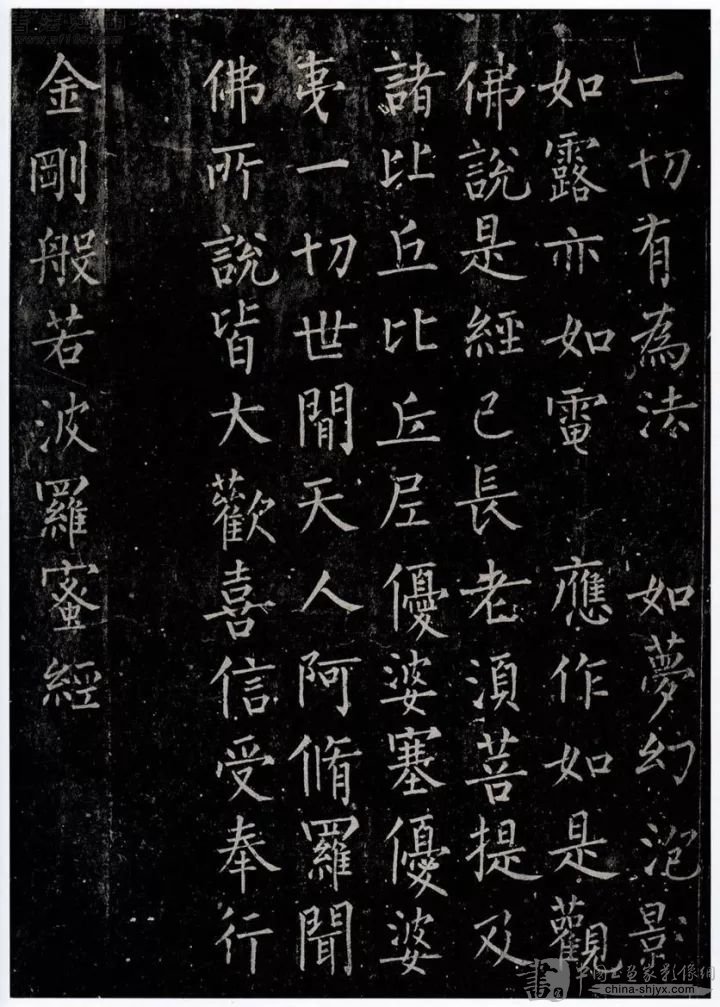 一切有為法　如夢幻泡影
如露亦如電　應作如是觀
佛說是經已長老須菩提及
諸比丘比丘尼優婆塞優婆
夷一切世間天人阿脩羅聞
佛所說皆大歡喜信受奉行
金剛般若波羅蜜經
china-shjyx.com